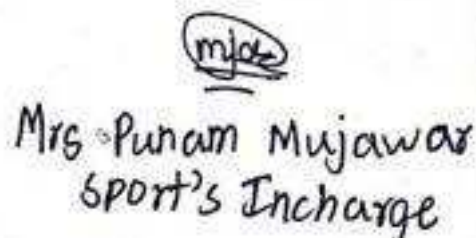 Mrs. Punam Mujawar
Sport's Incharge